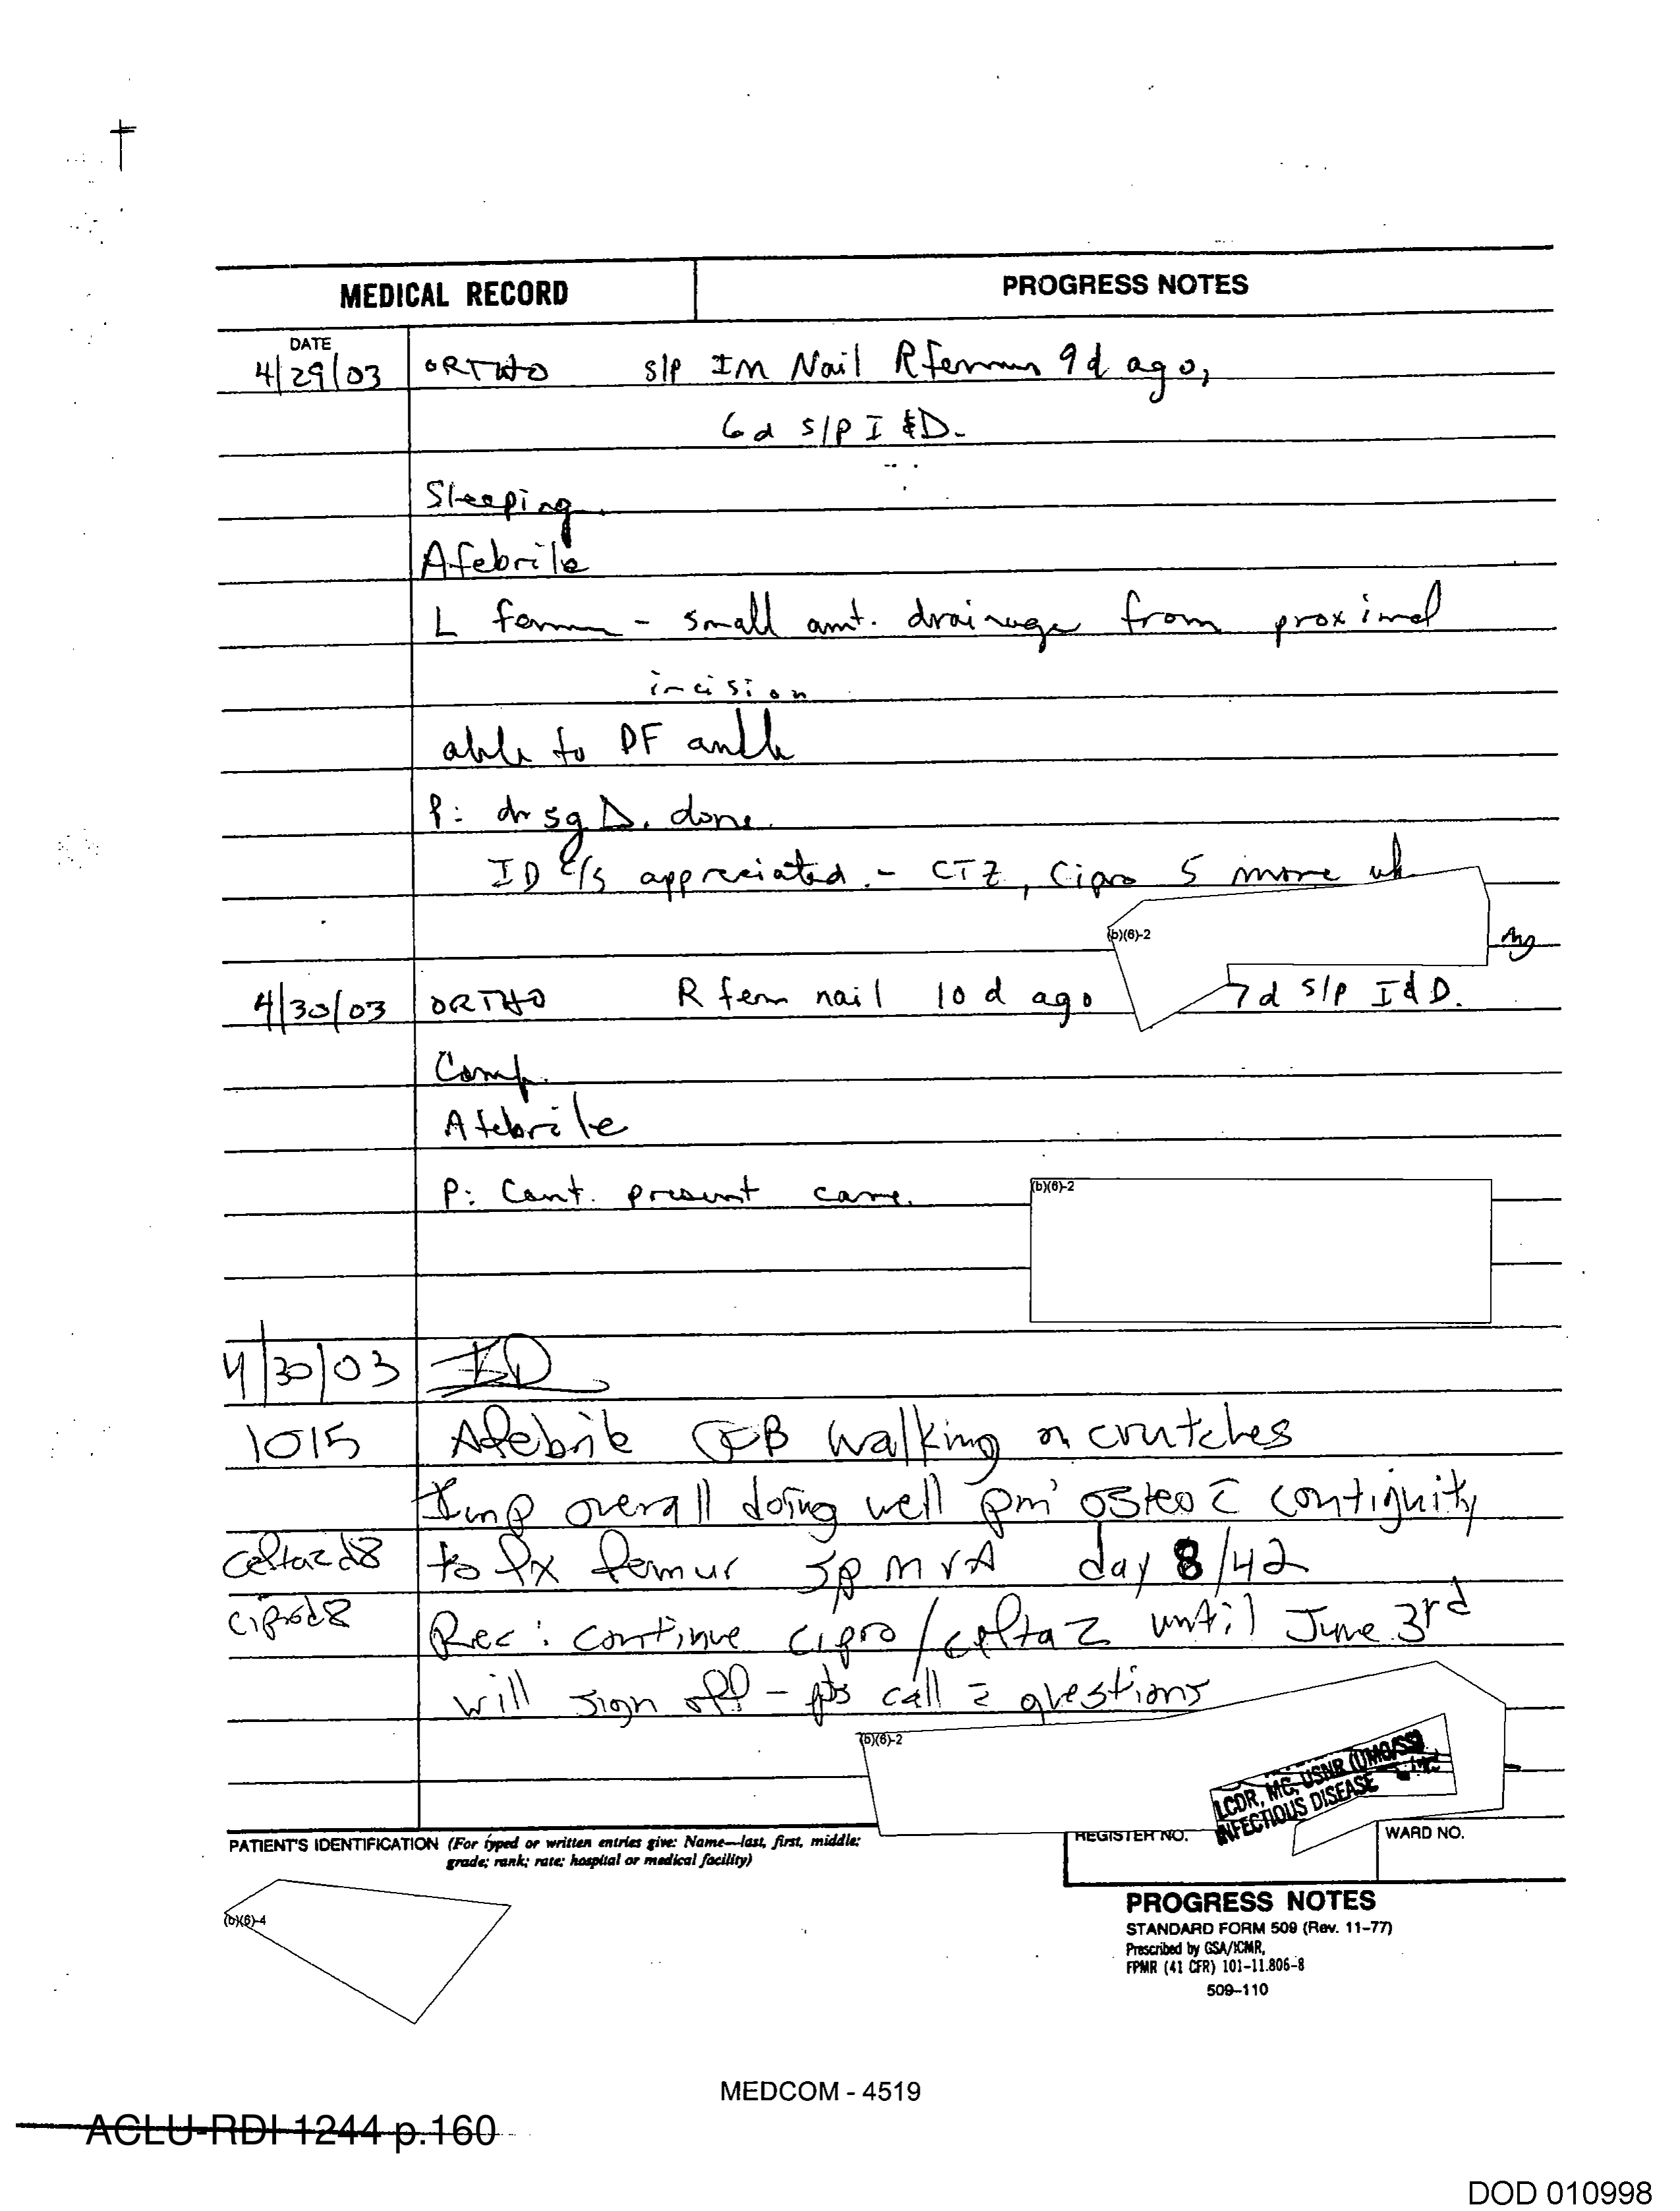 MEDICAL RECORD
PROGRESS NOTES
DATE
4/29/03 ORTHO s/p IM Nail R femur 9d ago,
6d s/p I&D.
Sleeping.
Afebrile
L femur - small amt. drainage from proximal
incision
able to DF ankle
P: drsg Δ. done.
ID c/s appreciated. - CTZ, Cipro 5 more wk
(b)(6)-2
4/30/03 ORTHO R fem nail 10 d ago 7d s/p I&D.
Comf.
Afebrile
P: Cont. present care.
(b)(6)-2
4/30/03 ID
1015 Afebrile OOB walking on crutches
Imp overall doing well osteo c̄ contiguity
ceftaz d8 to fx femur sp MVA day 8/42
cipro d8 Rec: continue cipro/ceftaz until June 3rd
will sign off - call c̄ questions
(b)(6)-2
LCDR, MC, USNR (UMO/SS)
INFECTIOUS DISEASE
PATIENT'S IDENTIFICATION (For typed or written entries give: Name—last, first, middle;
grade; rank; rate; hospital or medical facility)
REGISTER NO.
WARD NO.
(b)(6)-4
PROGRESS NOTES
STANDARD FORM 509 (Rev. 11-77)
Prescribed by GSA/ICMR,
FPMR (41 CFR) 101-11.806-8
509-110
MEDCOM - 4519
ACLU-RDI 1244 p.160
DOD 010998